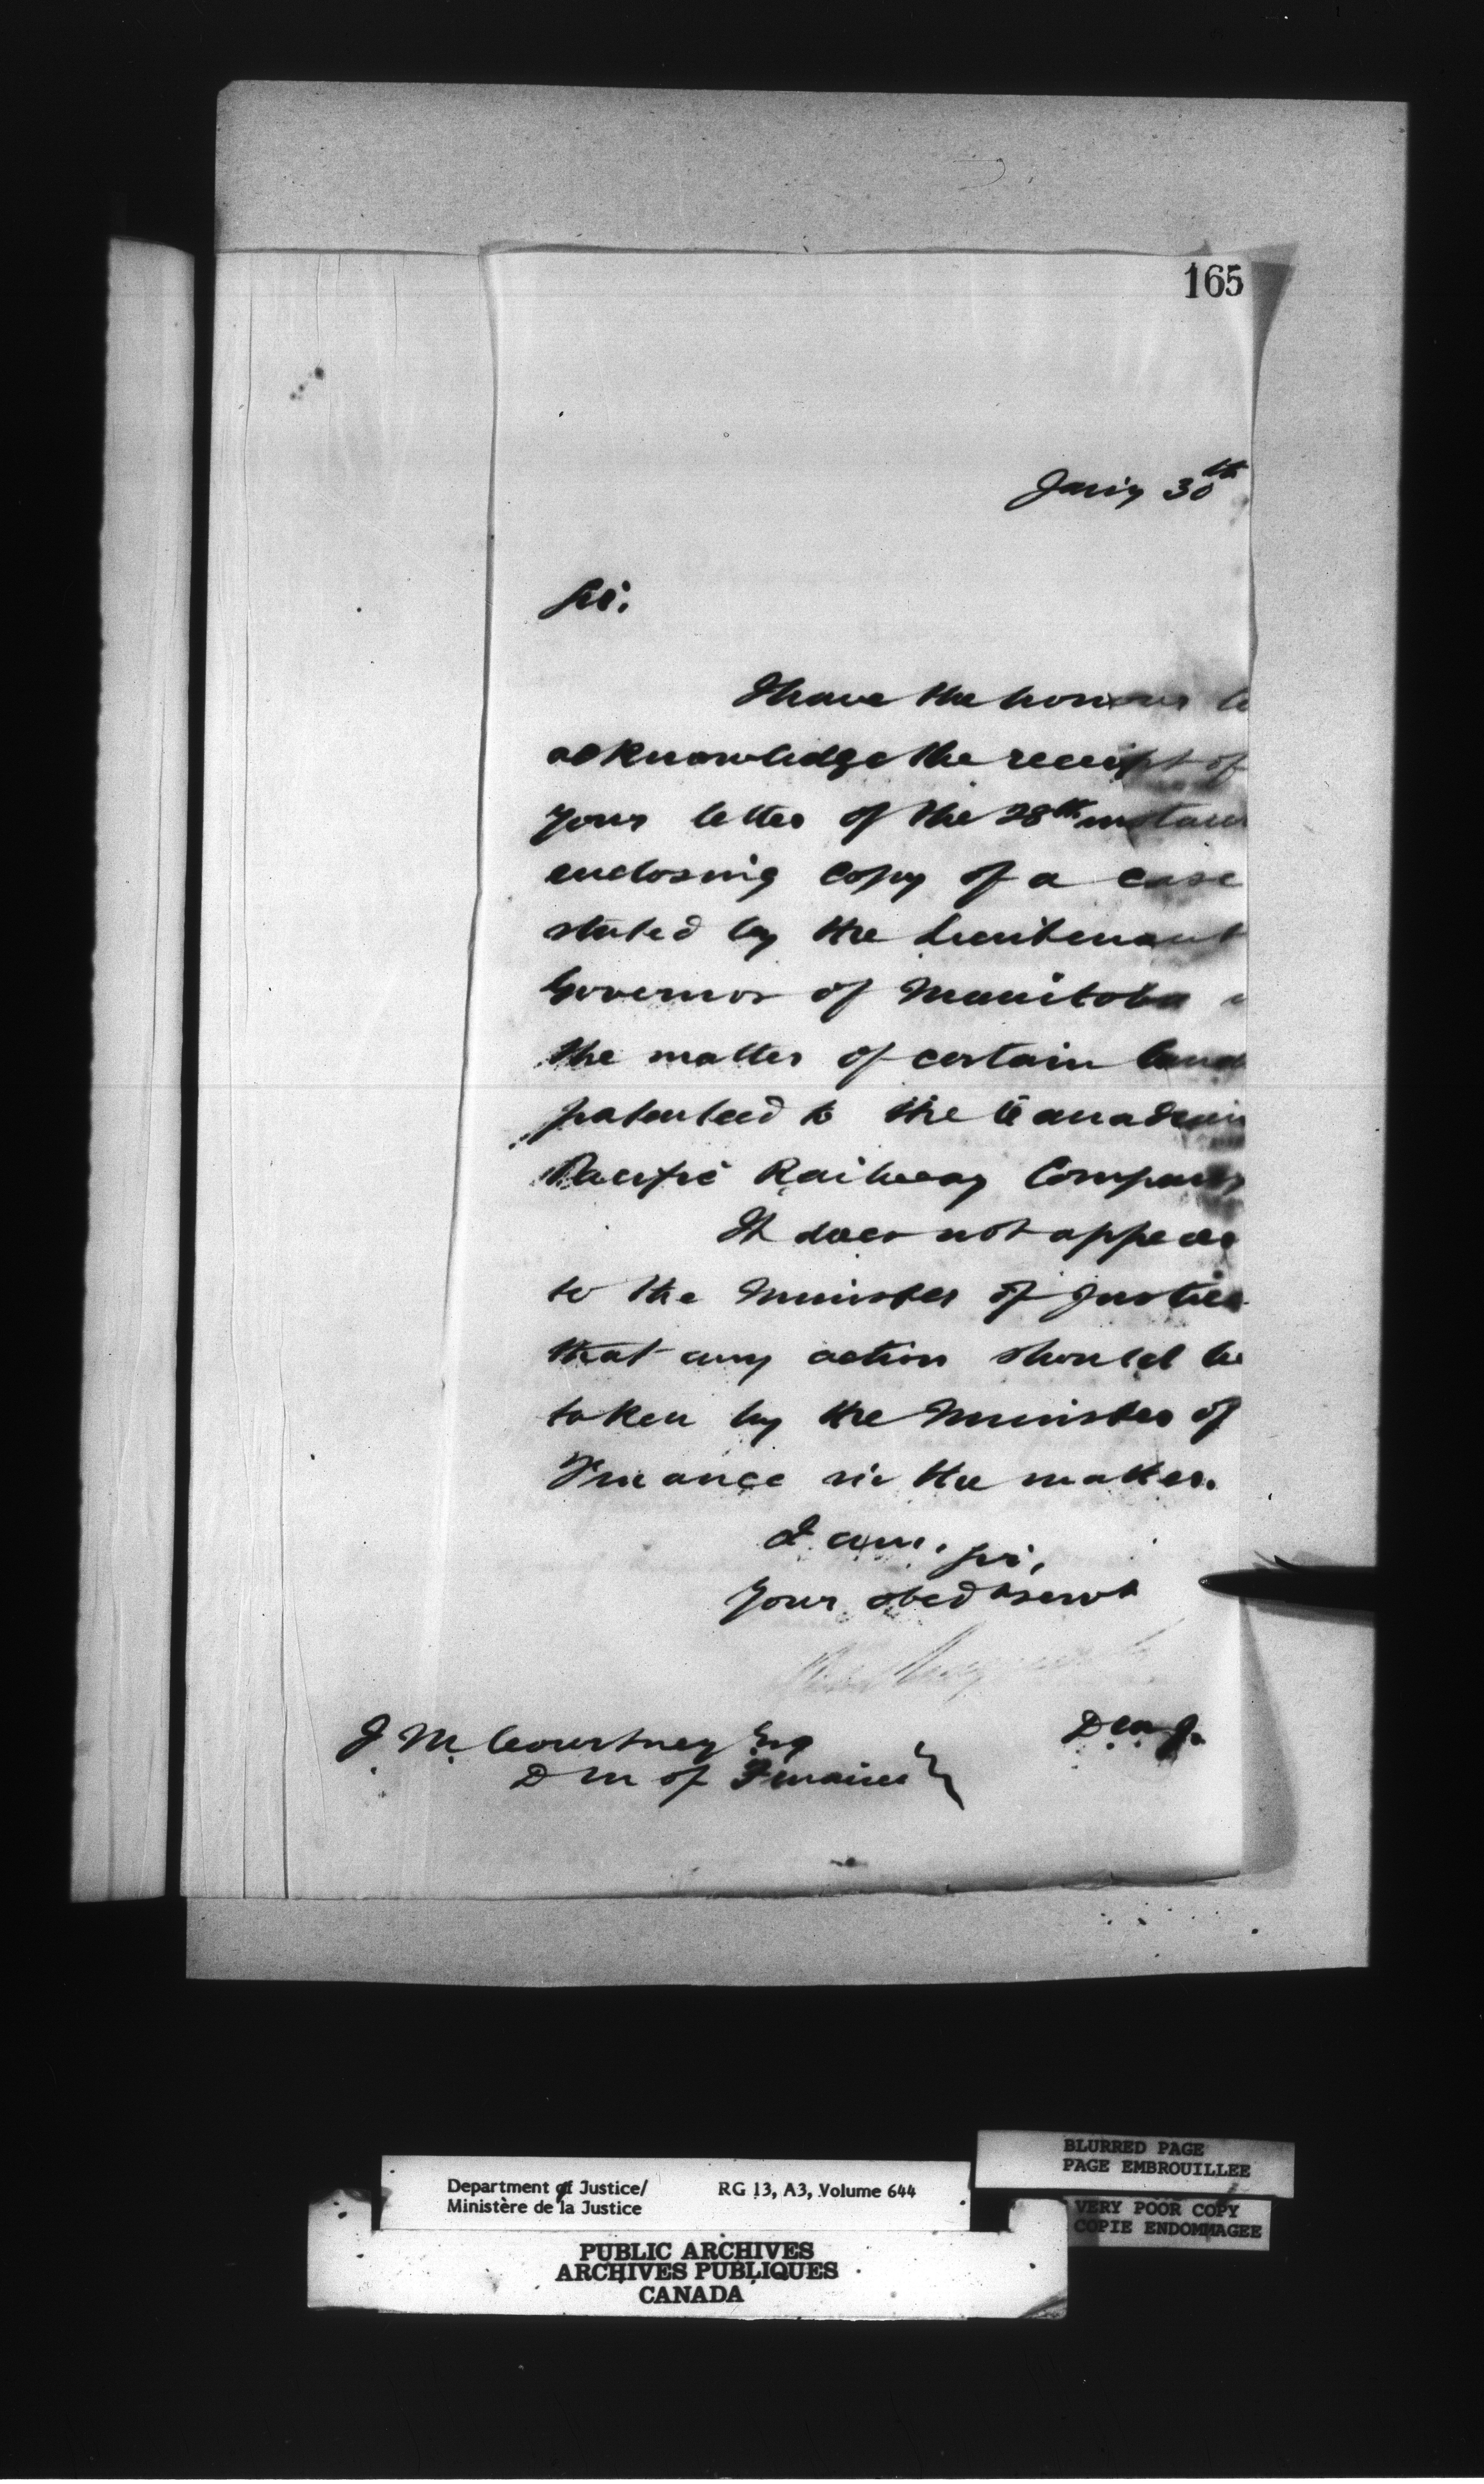 165
Jan'y 30th
Sir.
I have the honour to
acknowledge the receipt of
your letter of the 28th instant
enclosing copy of a case
stated by the Lieutenant
Governor of Manitoba
the matter of certain land
patented to the Canadian
Pacific Railway Company
It does not appear
to the Minister of Justice
that any action should be
taken by the Minister of
Finance in the matter.
I am. Sir,
Your obedt servt
D M J.
J M Courtney Esq
D M of Finance
BLURRED PAGE
PAGE EMBROUILLEE
Department of Justice/ RG 13, A3, Volume 644
Ministère de la Justice
VERY POOR COPY
COPIE ENDOMMAGEE
PUBLIC ARCHIVES
ARCHIVES PUBLIQUES
CANADA